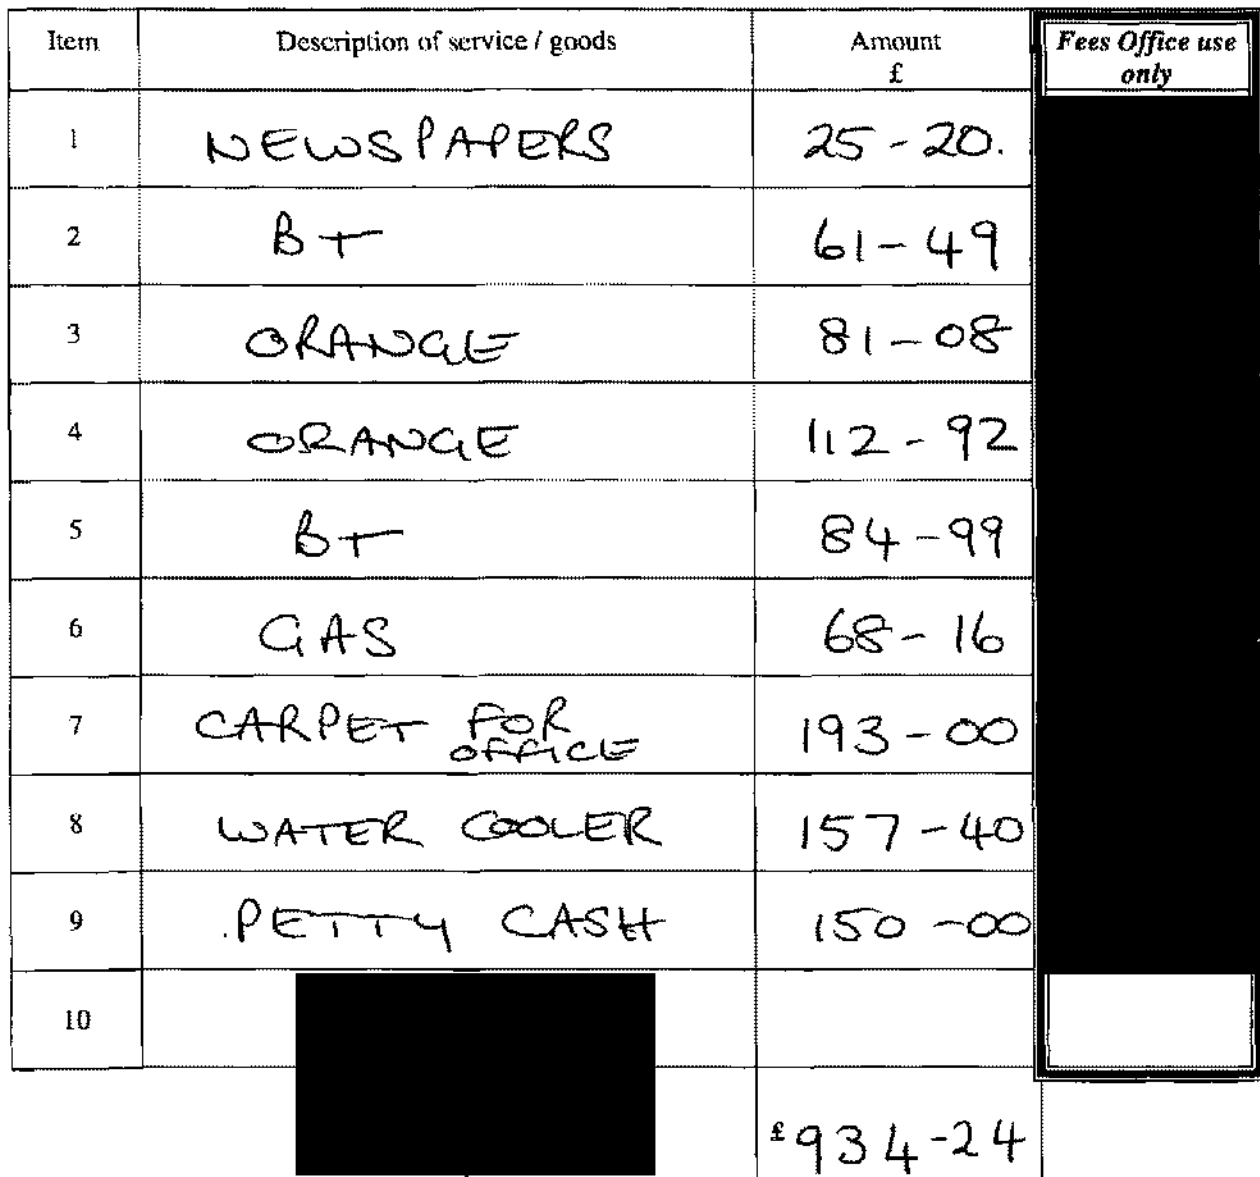 Item Description of service / goods Amount £ Fees Office use only
1 NEWSPAPERS 25-20.
2 BT 61-49
3 ORANGE 81-08
4 ORANGE 112-92
5 BT 84-99
6 GAS 68-16
7 CARPET FOR OFFICE 193-00
8 WATER COOLER 157-40
9 .PETTY CASH 150-00
10
£934-24